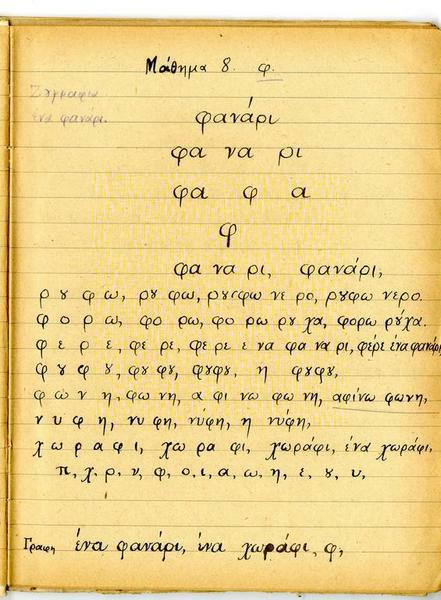 Μάθημα 8. φ.
Ζωγραφιά
ένα φανάρι.
φανάρι
φα να ρι
φα φ α
φ
φα να ρι, φανάρι,
ρ ȣ φ ω, ρȣ φω, ρȣφω νε ρο, ρȣφω νερο.
φ ο ρ ω, φο ρω, φο ρω ρȣ χα, φορω ρȣ́χα.
φ ε ρ ε, φε ρε, φε ρε ε να φα να ρι, φέρε ένα φανάρι,
φ ȣ φ ȣ, φȣ φȣ, φȣφȣ, η φȣφȣ,
φ ω ν η, φω νη, α φι νω φω νη, αφίνω φωνη,
ν υ φ η, νυ φη, νύφη, η νύφη,
χ ω ρ α φ ι, χω ρα φι, χωράφι, ένα χωράφι,
π, χ, ρ, ν, φ, ο, ι, α, ω, η, ε, ȣ, υ,
Γραφη ένα φανάρι, ένα χωράφι, φ,